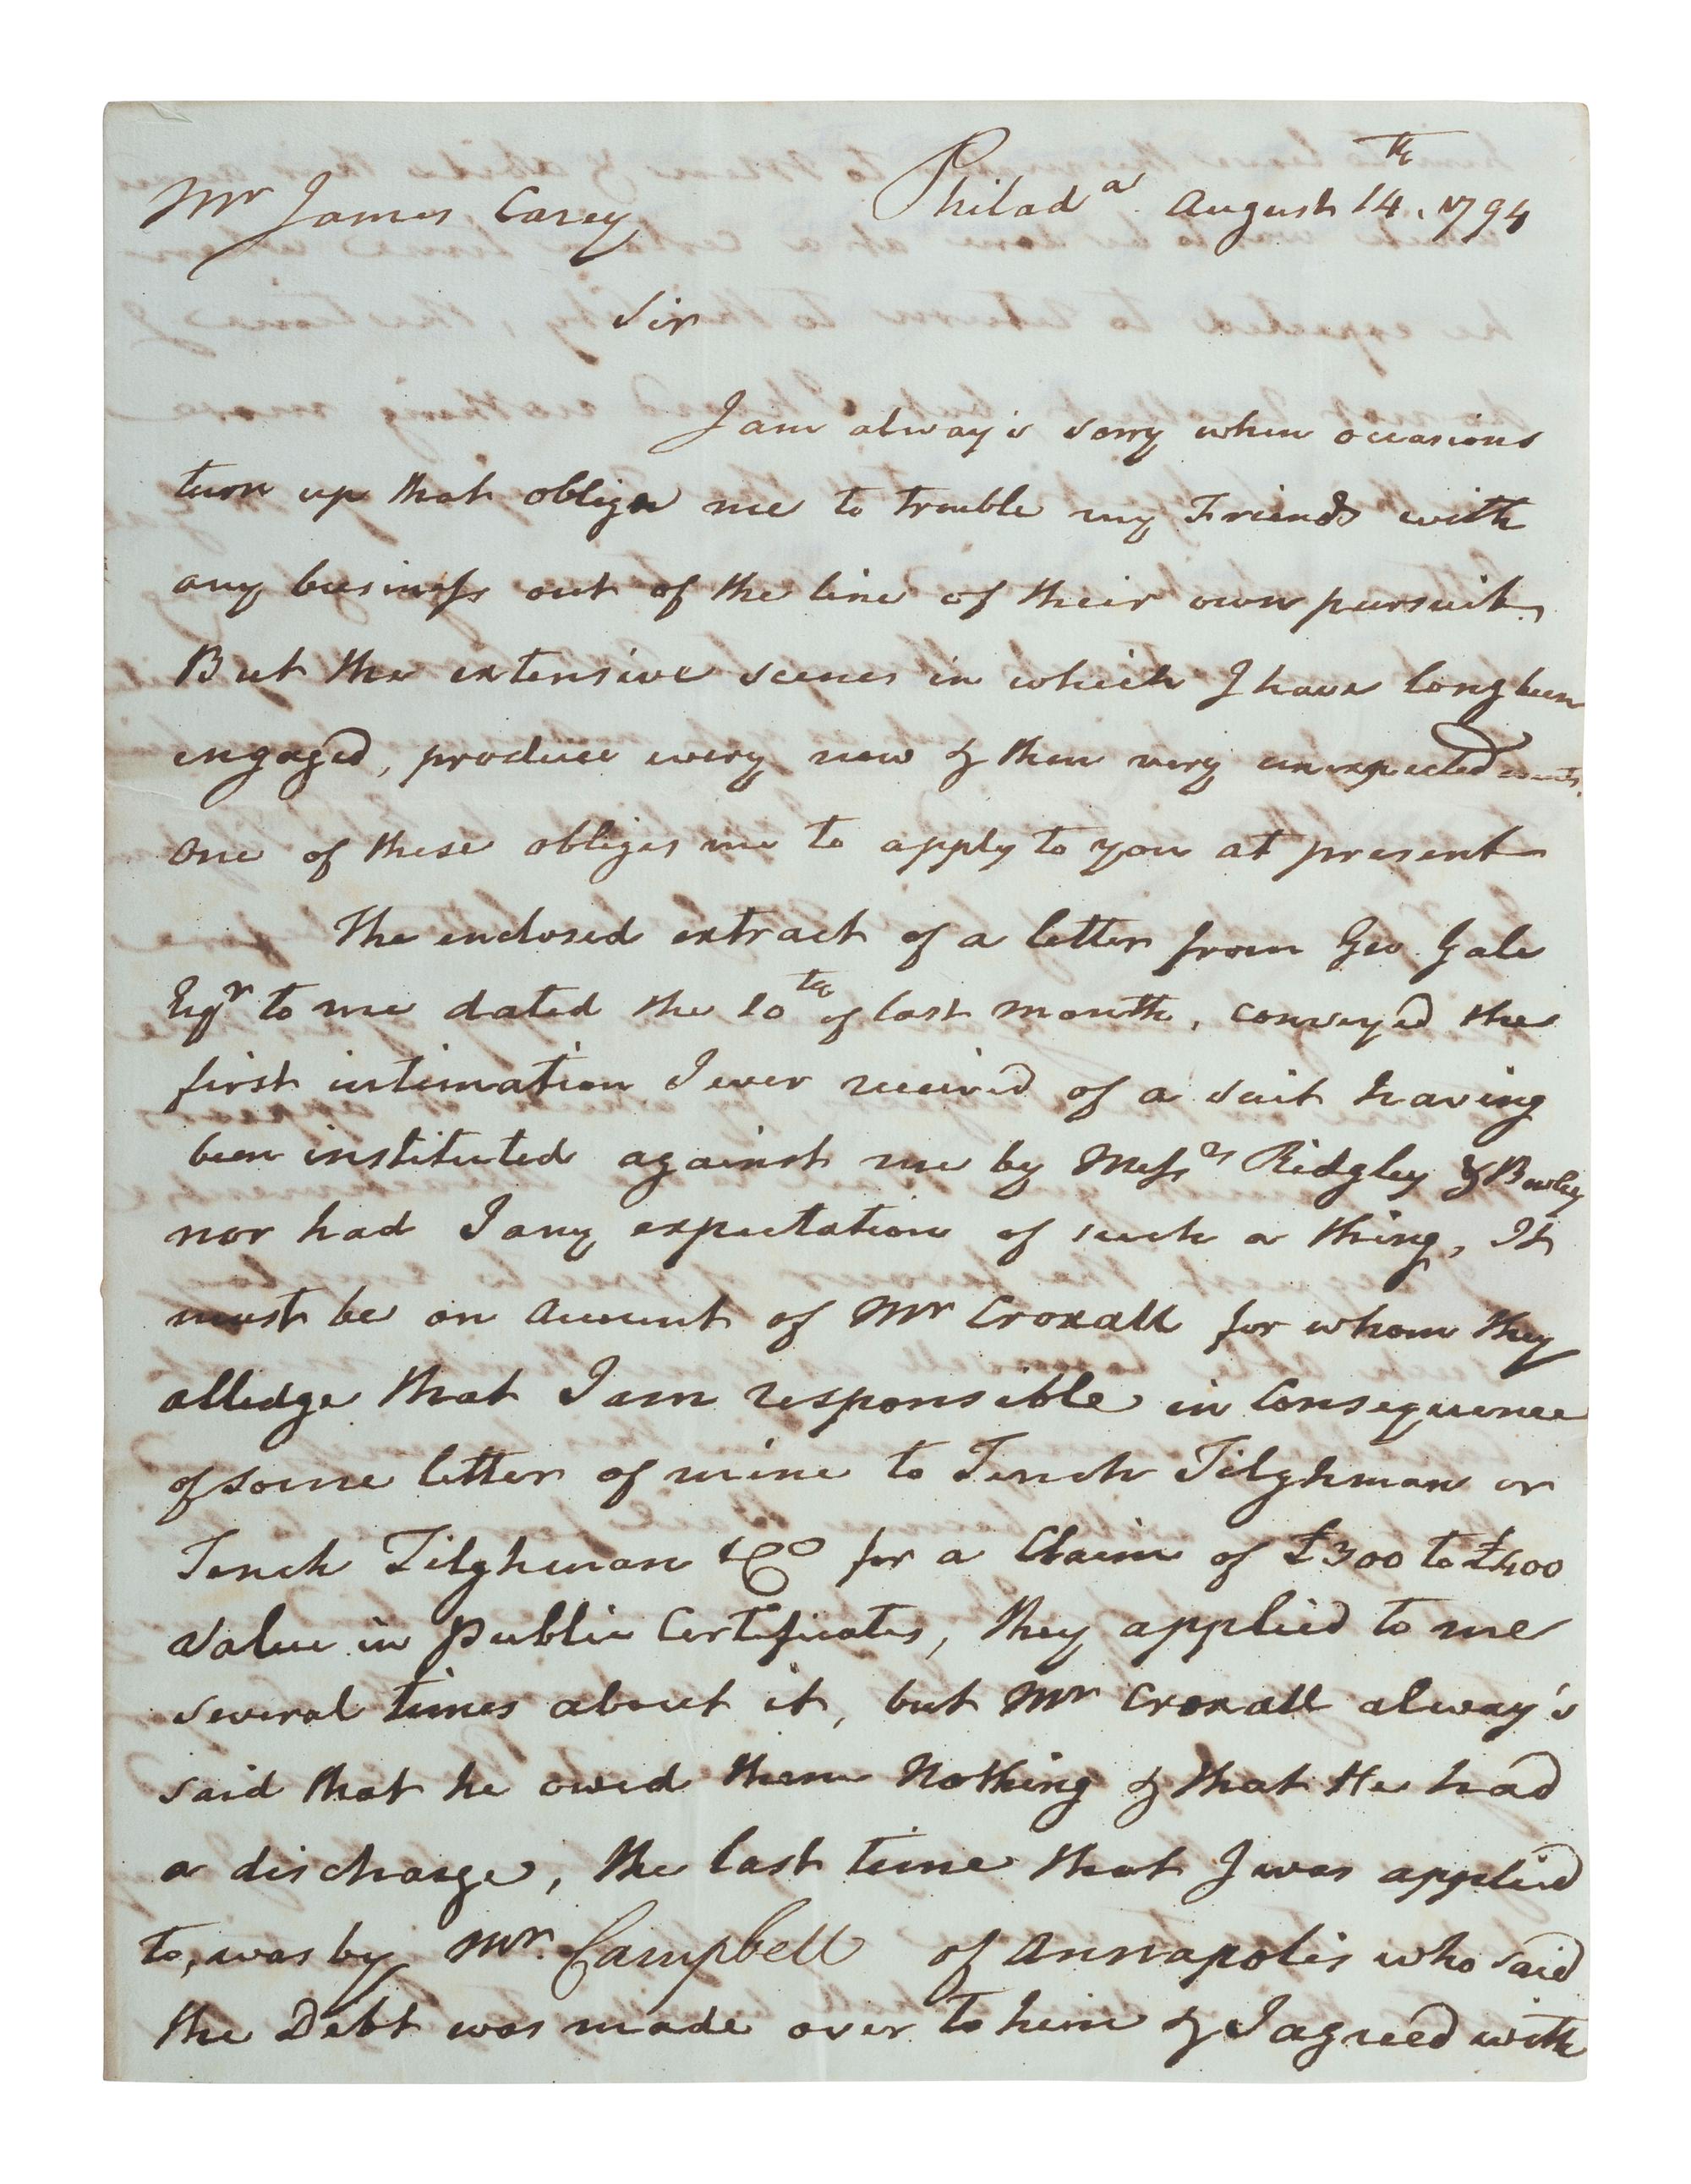 Mr James Carey
Philad.a August 14.th 1794
Sir
I am alway's sorry when occasions
turn up that oblige me to trouble my Friends with
any business out of the line of their own pursuit,
But the extensive scenes in which I have long been
engaged, produce every now & then very unexpected events.
One of these obliges me to apply to you at present
The enclosed extract of a letter from Geo. Gale
Esqr to me dated the 10th of last month, conveyed the
first intimation I ever received of a suit having
been instituted against me by Messrs Ridgley & Bowley
nor had I any expectation of such a thing, It
must be on account of Mr Croxall for whom they
alledge that I am responsible in Consequence
of some letter of mine to Tench Tilghman or
Tench Tilghman & Co for a Claim of £300 to £400
Value in Public Certificates, they applied to me
several times about it, but Mr Croxall alway's
said that he owed them Nothing & that He had
a discharge, the last time that I was applied
to, was by Mr. Campbell of Annapolis who said
the Debt was made over to him & I agreed with